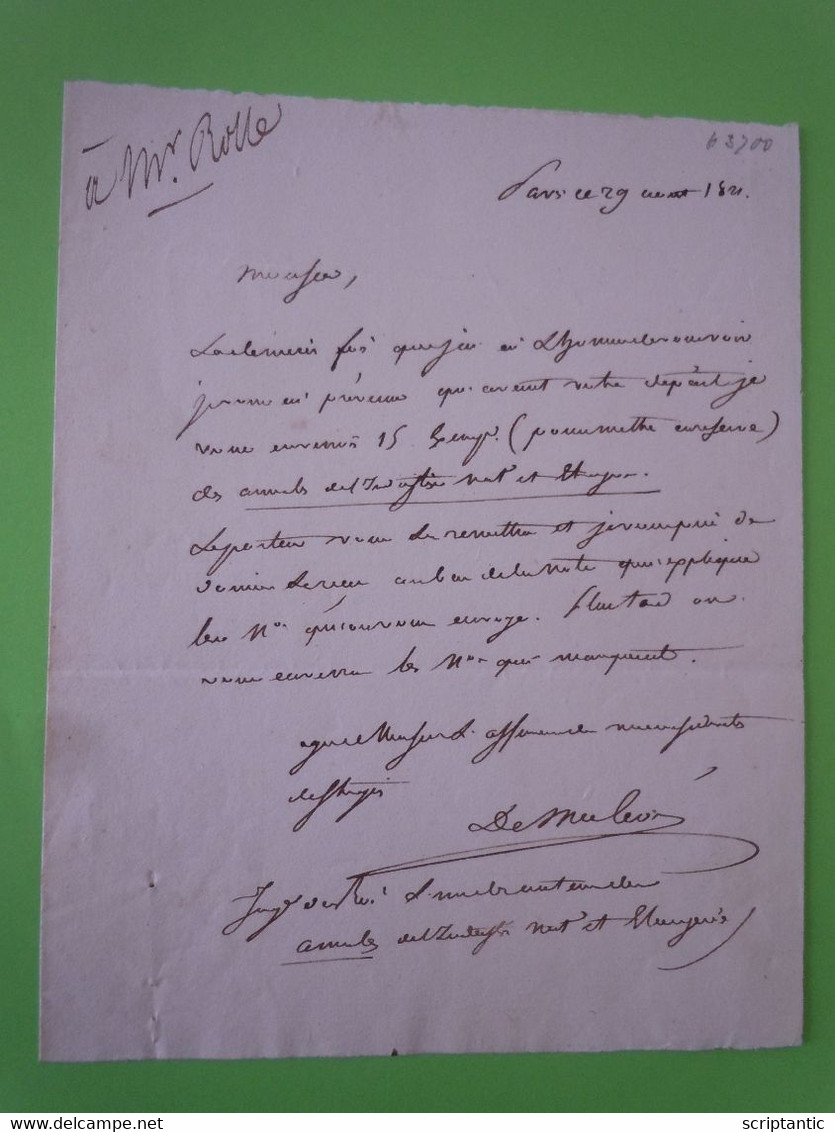 à Mr. Rolle
63700
Paris ce 29 aout 1821.
Monsieur,
La derniere fois que j'ai eu L'honneur de vous voir
je vous ai prévenu qu'avant votre départ je
vous enverrois 15 Exemp. (pour mettre en reserve)
des annales de l'Industrie Natle et Etrangere.
Le porteur vous Les remettra et je vous prie de
donner Le recu au bas de la Note qui explique
les Nos qu'on vous envoye. Plus tard on
vous enverra les Nos qui manquent.
agreez Monsieur L'assurance de mes sentiments
distingués
De Moleon
Ingr du Roi L'un des auteurs des
annales de l'Industrie Natle et Etrangere
scriptantic